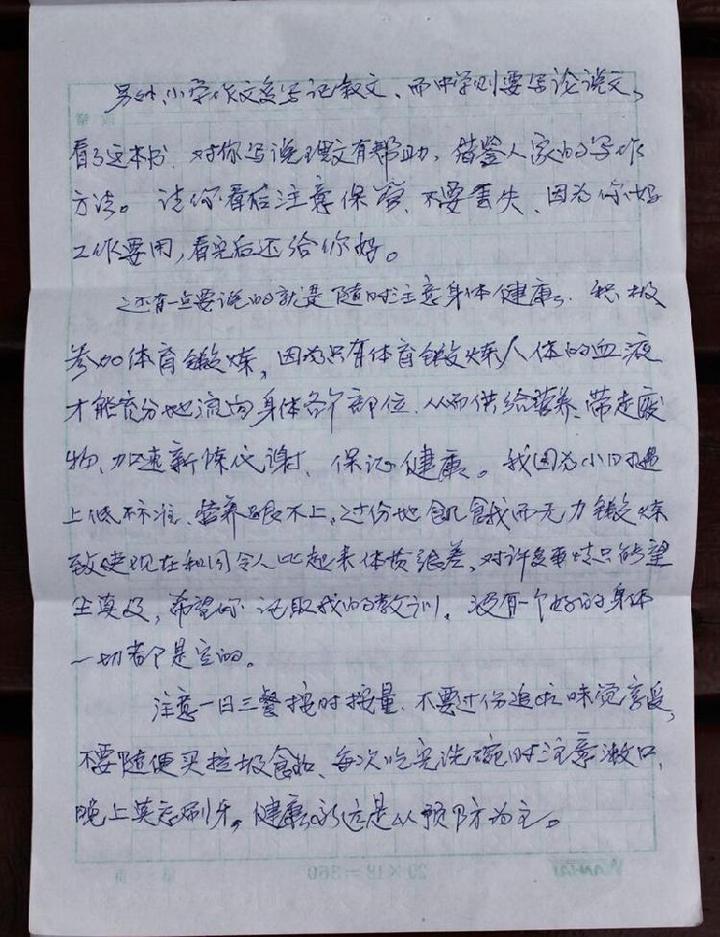 另外,小学作文多写记叙文、而中学则要写论说文,
看了这本书,对你写说理文有帮助,借鉴人家的写作
方法。请你看后注意保管、不要丢失、因为你妈
工作要用,看完后还给你妈。
还有一点要说的就是随时注意身体健康、积极
参加体育锻炼,因为只有体育锻炼人体的血液
才能充分地流向身体各个部位、从而供给营养、带走废
物、加速新陈代谢、保证健康。我因为小时遇
上低标准、营养跟不上,过份地饥饿而无力锻炼
致使现在和同令人比起来体质很差、对许多事情只能望
尘莫及,希望你记取我的教训,没有一个好的身体
一切都是空的。
注意一日三餐按时按量、不要过份追啦味觉享受,
不要随便买垃圾食品、每次吃完洗碗时注意漱口,
晚上莫忘刷牙。健康永远是从预防为主。
20×18=360